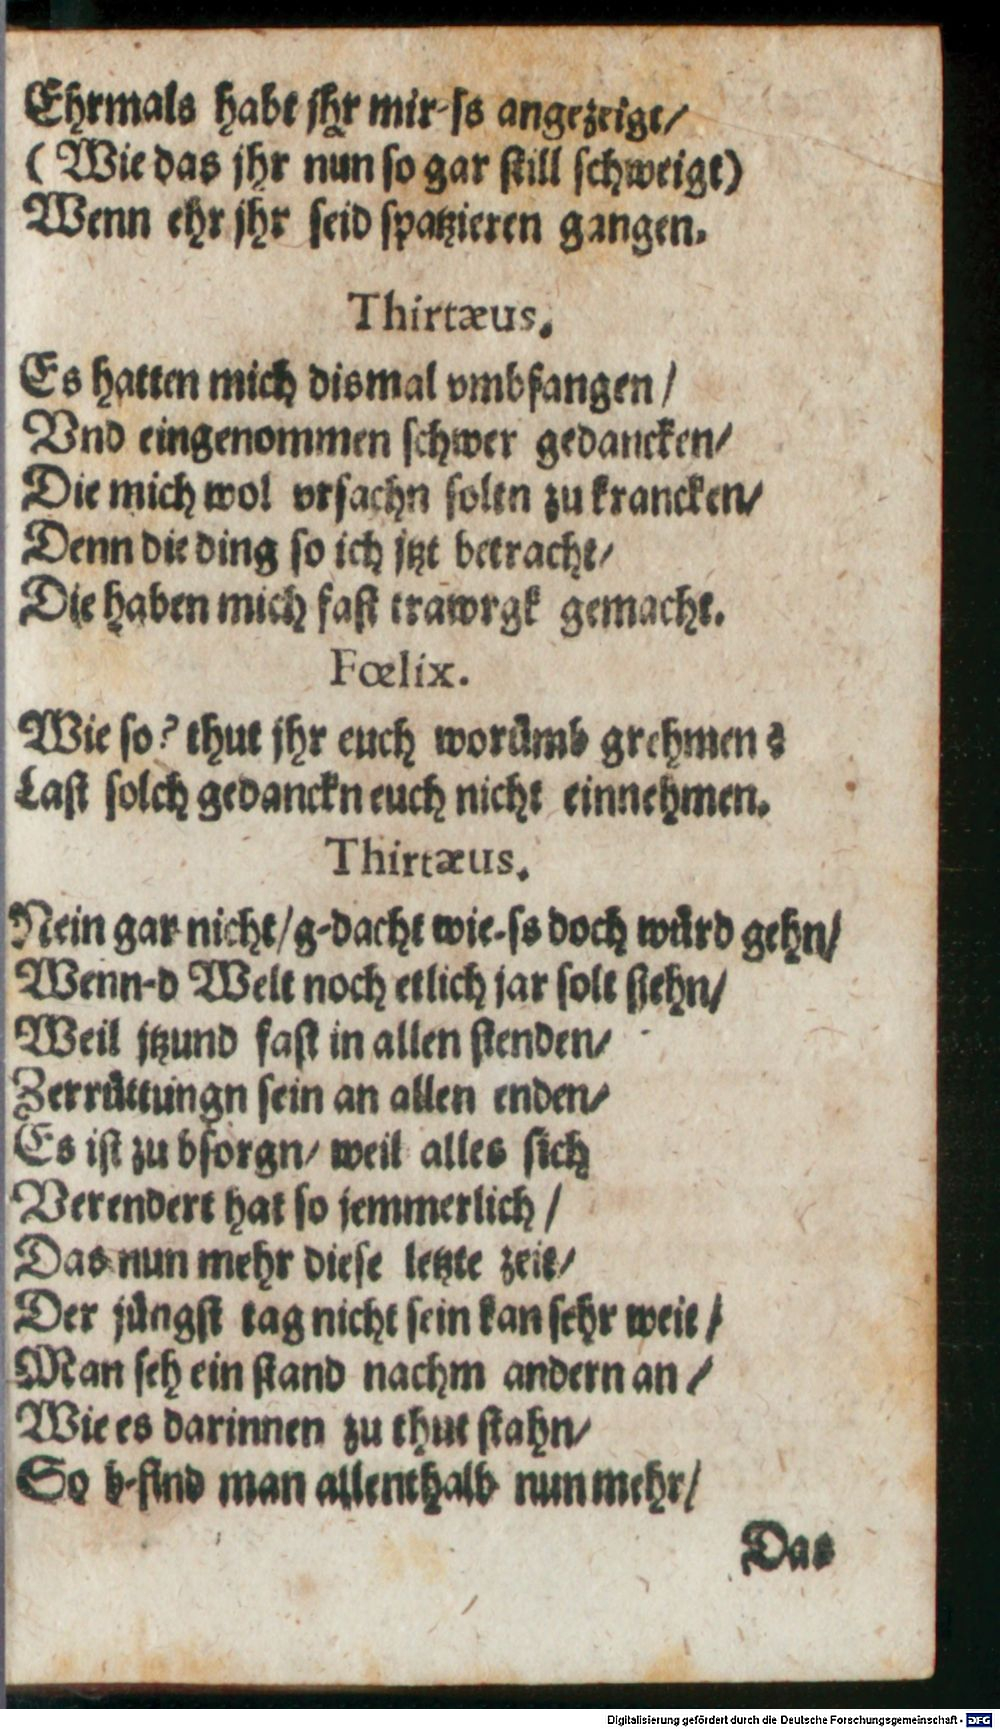 Ehrmals habt jhr mir-ſs angezeigt/
( Wie das jhr nun ſo gar ſtill ſchweigt)
Wenn ehr jhr ſeid ſpatzieren gangen.
Thirtæus.
Es hatten mich dismal vmbfangen /
Vnd eingenommen ſchwer gedancken/
Die mich wol vrſachn ſolen zu krancken/
Denn die ding ſo ich jtzt betracht/
Die haben mich faſt trawrgk gemacht.
Fœlix.
Wie ſo? thut jhr euch worümb grehmen?
Laſt ſolch gedanckn euch nicht einnehmen.
Thirtæus.
Nein gar nicht/g-dacht wie-ſs doch würd gehn/
Wenn-d Welt noch etlich jar ſolt ſtehn/
Weil jtzund faſt in allen ſtenden/
Zerrüttungn ſein an allen enden/
Es iſt zu bſorgn/ weil alles ſich
Verendert hat ſo jemmerlich /
Das nun mehr dieſe letzte zeit/
Der jüngſt tag nicht ſein kan ſehr weit /
Man ſeh ein ſtand nachm andern an /
Wie es darinnen zu thut ſtahn/
So b-find man allenthalb nun mehr/
Das
Digitalisierung gefördert durch die Deutsche Forschungsgemeinschaft - DFG